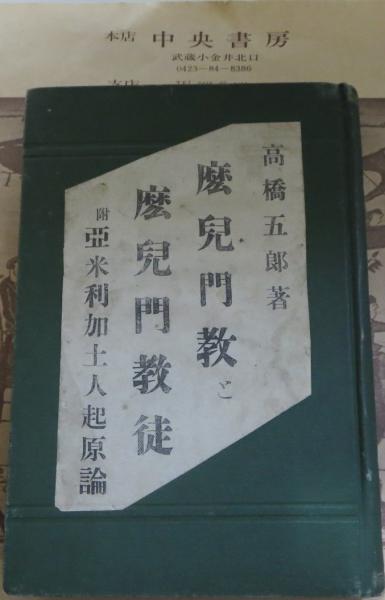 本店 中央書房
武蔵小金井北口
0423-84-8386
支店
高橋五郎著
麽兒門教と
麽兒門教徒
附 亞米利加土人起原論